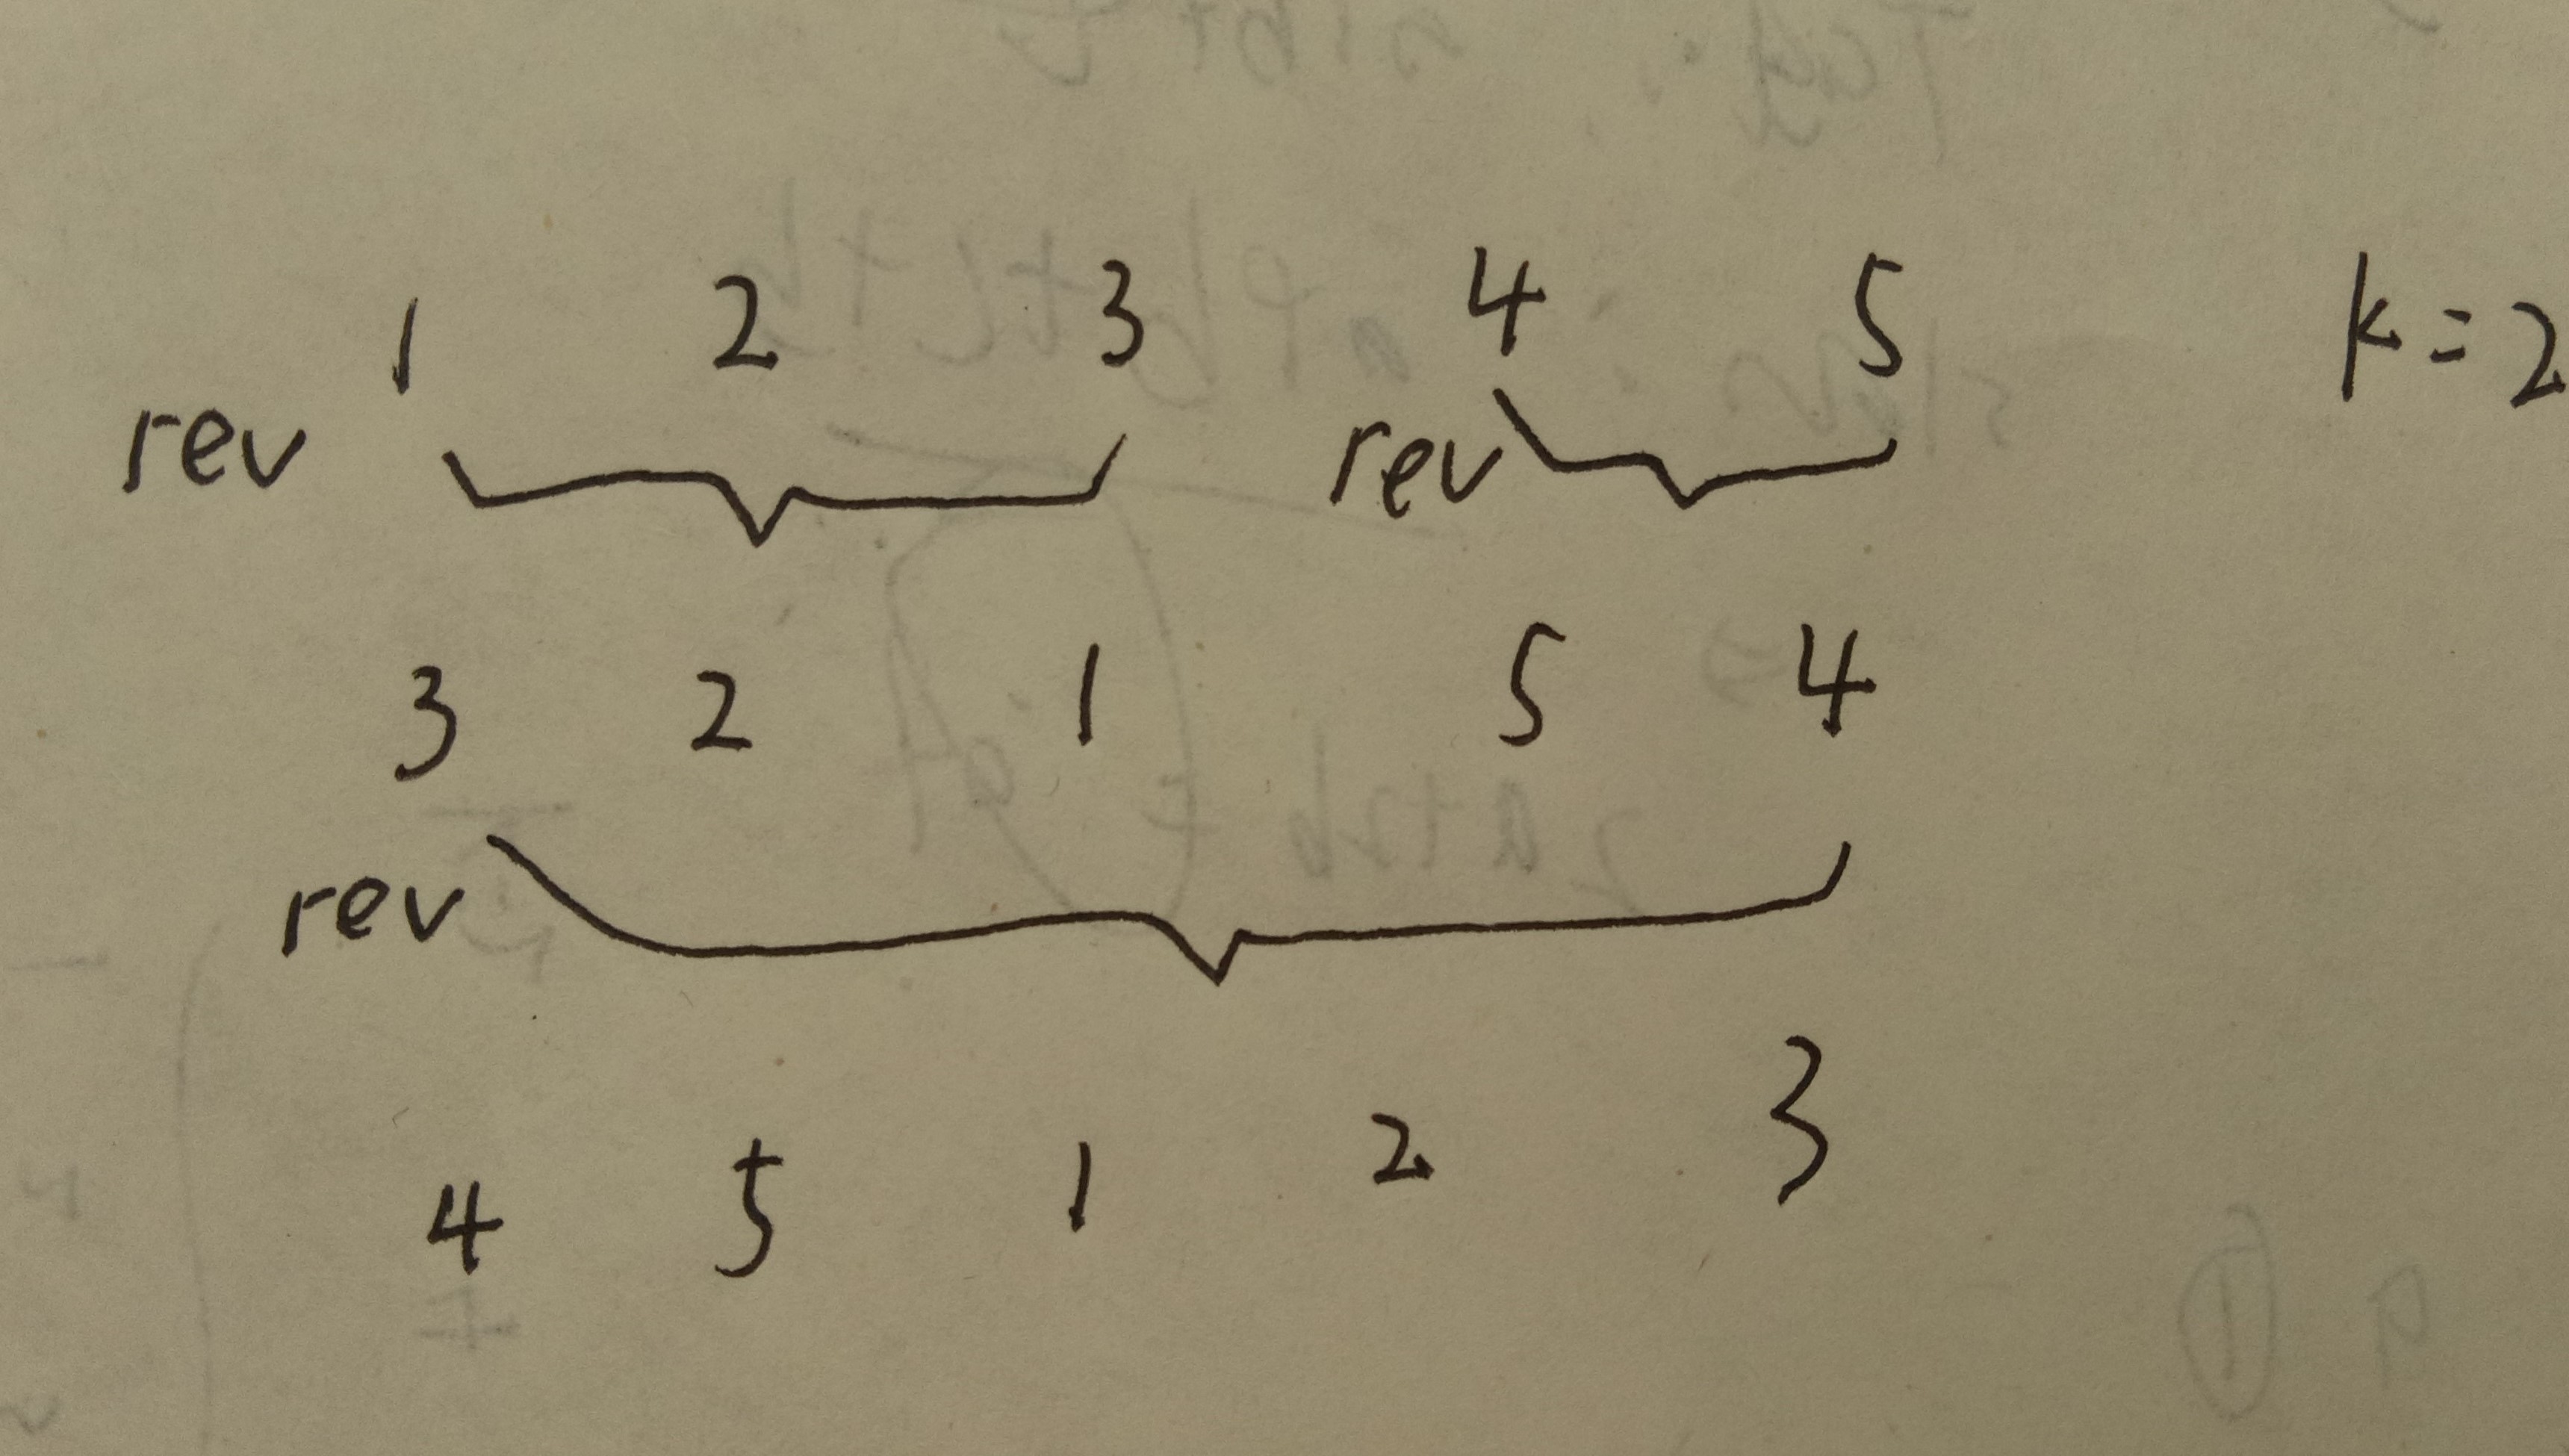 1 2 3 4 5 k=2
rev rev
3 2 1 5 4
rev
4 5 1 2 3